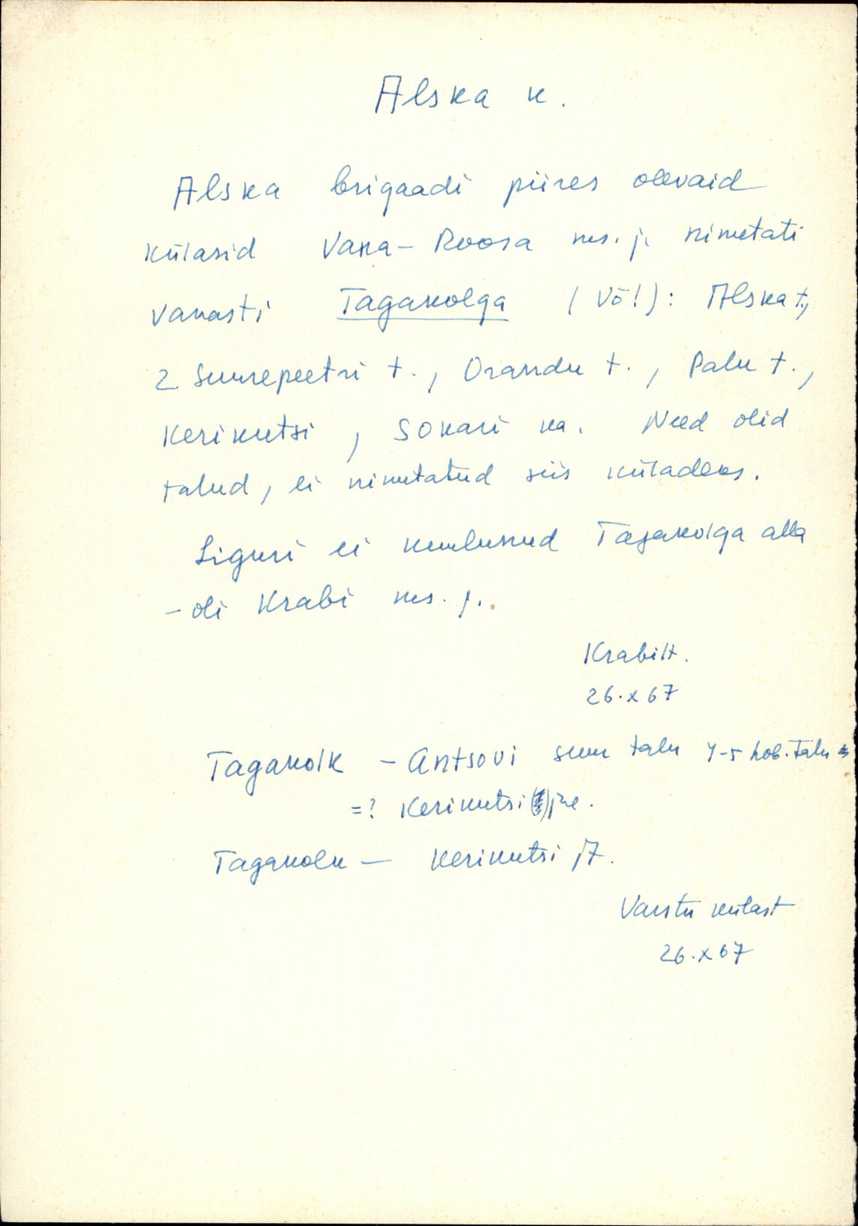 Alska k.
Alska brigaadi piires olevaid
külasid Vana-Roosa ms. j. nimetati
vanasti Tagakolga (Võ!): Alska t.,
2 Suurepeetri t., Orandu t., Palu t.,
Kerikutsi, Sokari ka. Need olid
talud, ei nimetatud siis küladeks.
Liguri ei kuulunud Tagakolga alla
- oli Krabi ms. j.
Krabilt.
26.X 67
Tagakolk - Antsovi suur talu 4-5 hob. talu
=? Kerikutsi jne.
Tagakolk — Kerikutsi jt.
Varstu külast
26.X 67